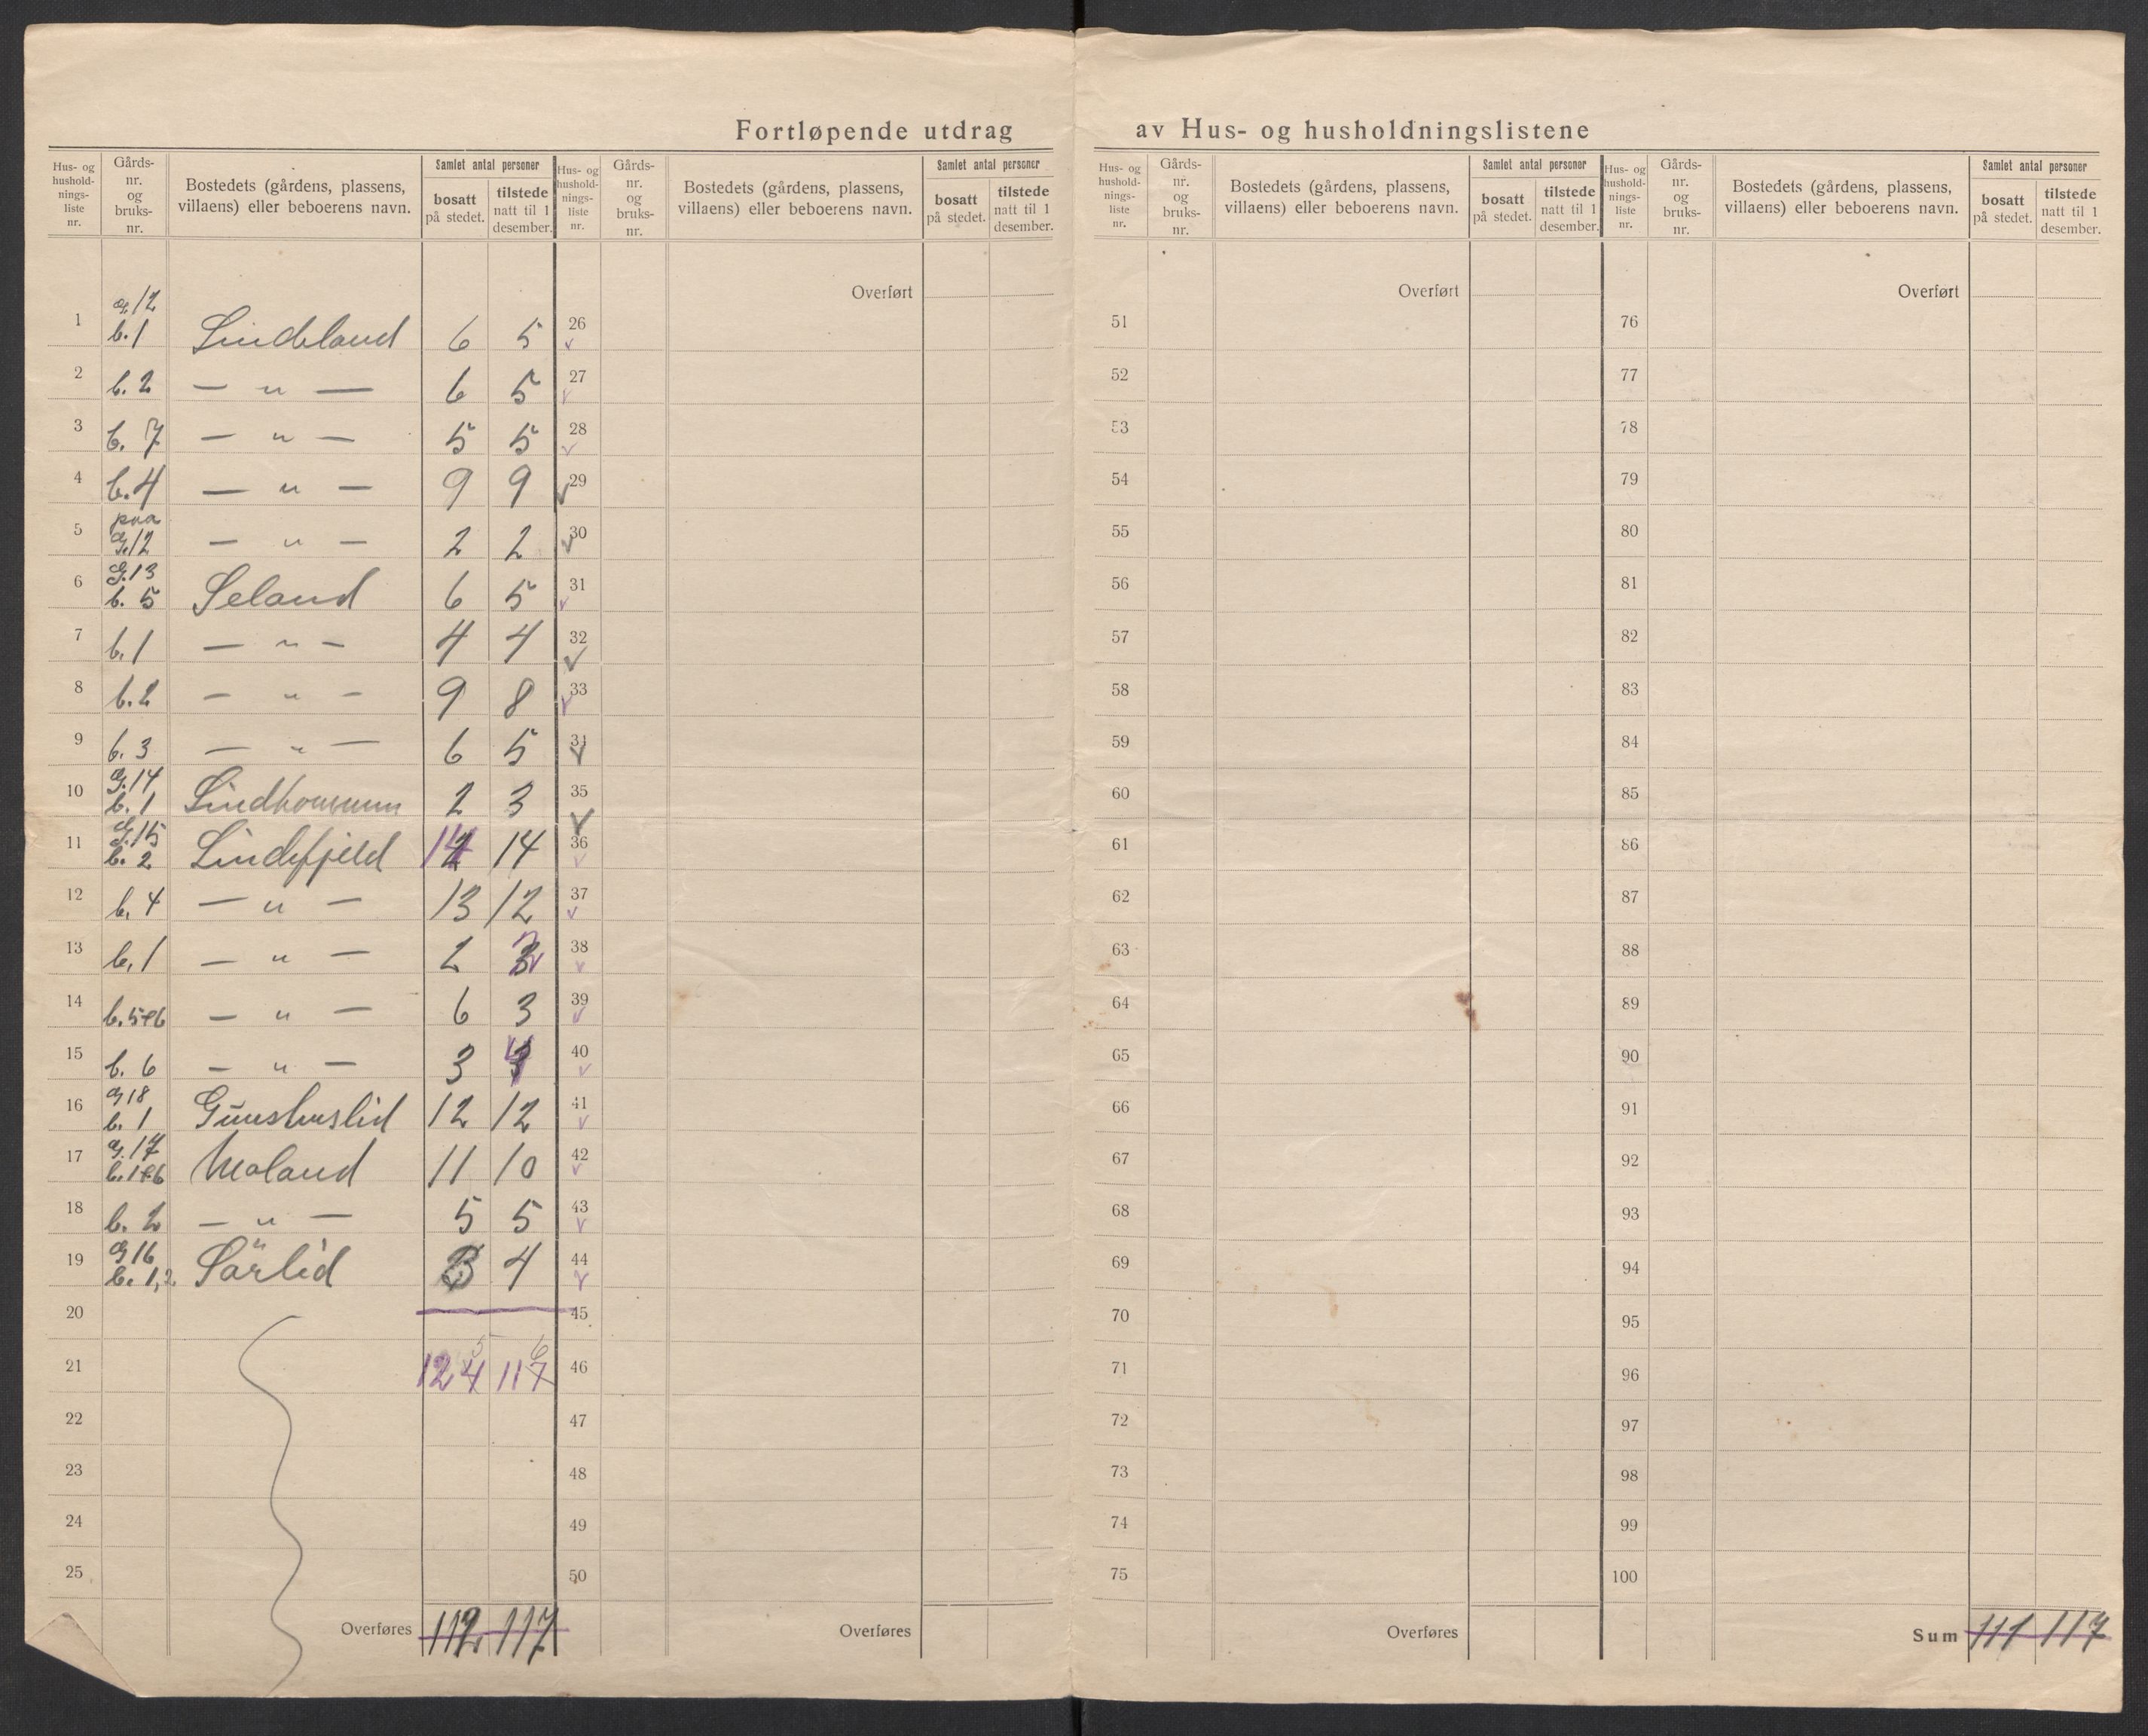 Fortløpende utdrag av Hus- og husholdningslistene
Hus- og hushold-nings-liste nr. | Gårds-nr. og bruks-nr. | Bostedets (gårdens, plassens, villaens) eller beboerens navn. | Samlet antal personer | bosatt på stedet. | tilstede natt til 1 desember.
Hus- og hushold-nings-liste nr. | Gårds-nr. og bruks-nr. | Bostedets (gårdens, plassens, villaens) eller beboerens navn. | Samlet antal personer | bosatt på stedet. | tilstede natt til 1 desember.
Hus- og hushold-nings-liste nr. | Gårds-nr. og bruks-nr. | Bostedets (gårdens, plassens, villaens) eller beboerens navn. | Samlet antal personer | bosatt på stedet. | tilstede natt til 1 desember.
Hus- og hushold-nings-liste nr. | Gårds-nr. og bruks-nr. | Bostedets (gårdens, plassens, villaens) eller beboerens navn. | Samlet antal personer | bosatt på stedet. | tilstede natt til 1 desember.
1 g.12 b.1 Lindeland 6 5
2 b.2 — " — 6 5
3 b.7 — " — 5 5
4 b.4 — " — 9 9
5 paa G.12 — " — 2 2
6 G.13 b.5 Seland 6 5
7 b.1 — " — 4 4
8 b.2 — " — 9 8
9 b.3 — " — 6 5
10 G.14 b.1 2 3
11 G.15 b.2 Lindefjeld 14 14
12 b.4 — " — 13 12
13 b.1 — " — 2
14 b.5+6 — " — 6 3
15 b.6 — " — 3 4
16 G18 b.1 12 12
17 G.17 b.1+6 Moland 11 10
18 b.2 — " — 5 5
19 G16 b.1,2 Sörlid 4
20
21 124 117
5 6
22
23
24
25
Overføres 112 117
Overført
26
27
28
29
30
31
32
33
34
35
36
37
38
39
40
41
42
43
44
45
46
47
48
49
50
Overføres
Overført
51
52
53
54
55
56
57
58
59
60
61
62
63
64
65
66
67
68
69
70
71
72
73
74
75
Overføres
Overført
76
77
78
79
80
81
82
83
84
85
86
87
88
89
90
91
92
93
94
95
96
97
98
99
100
Sum 111 117